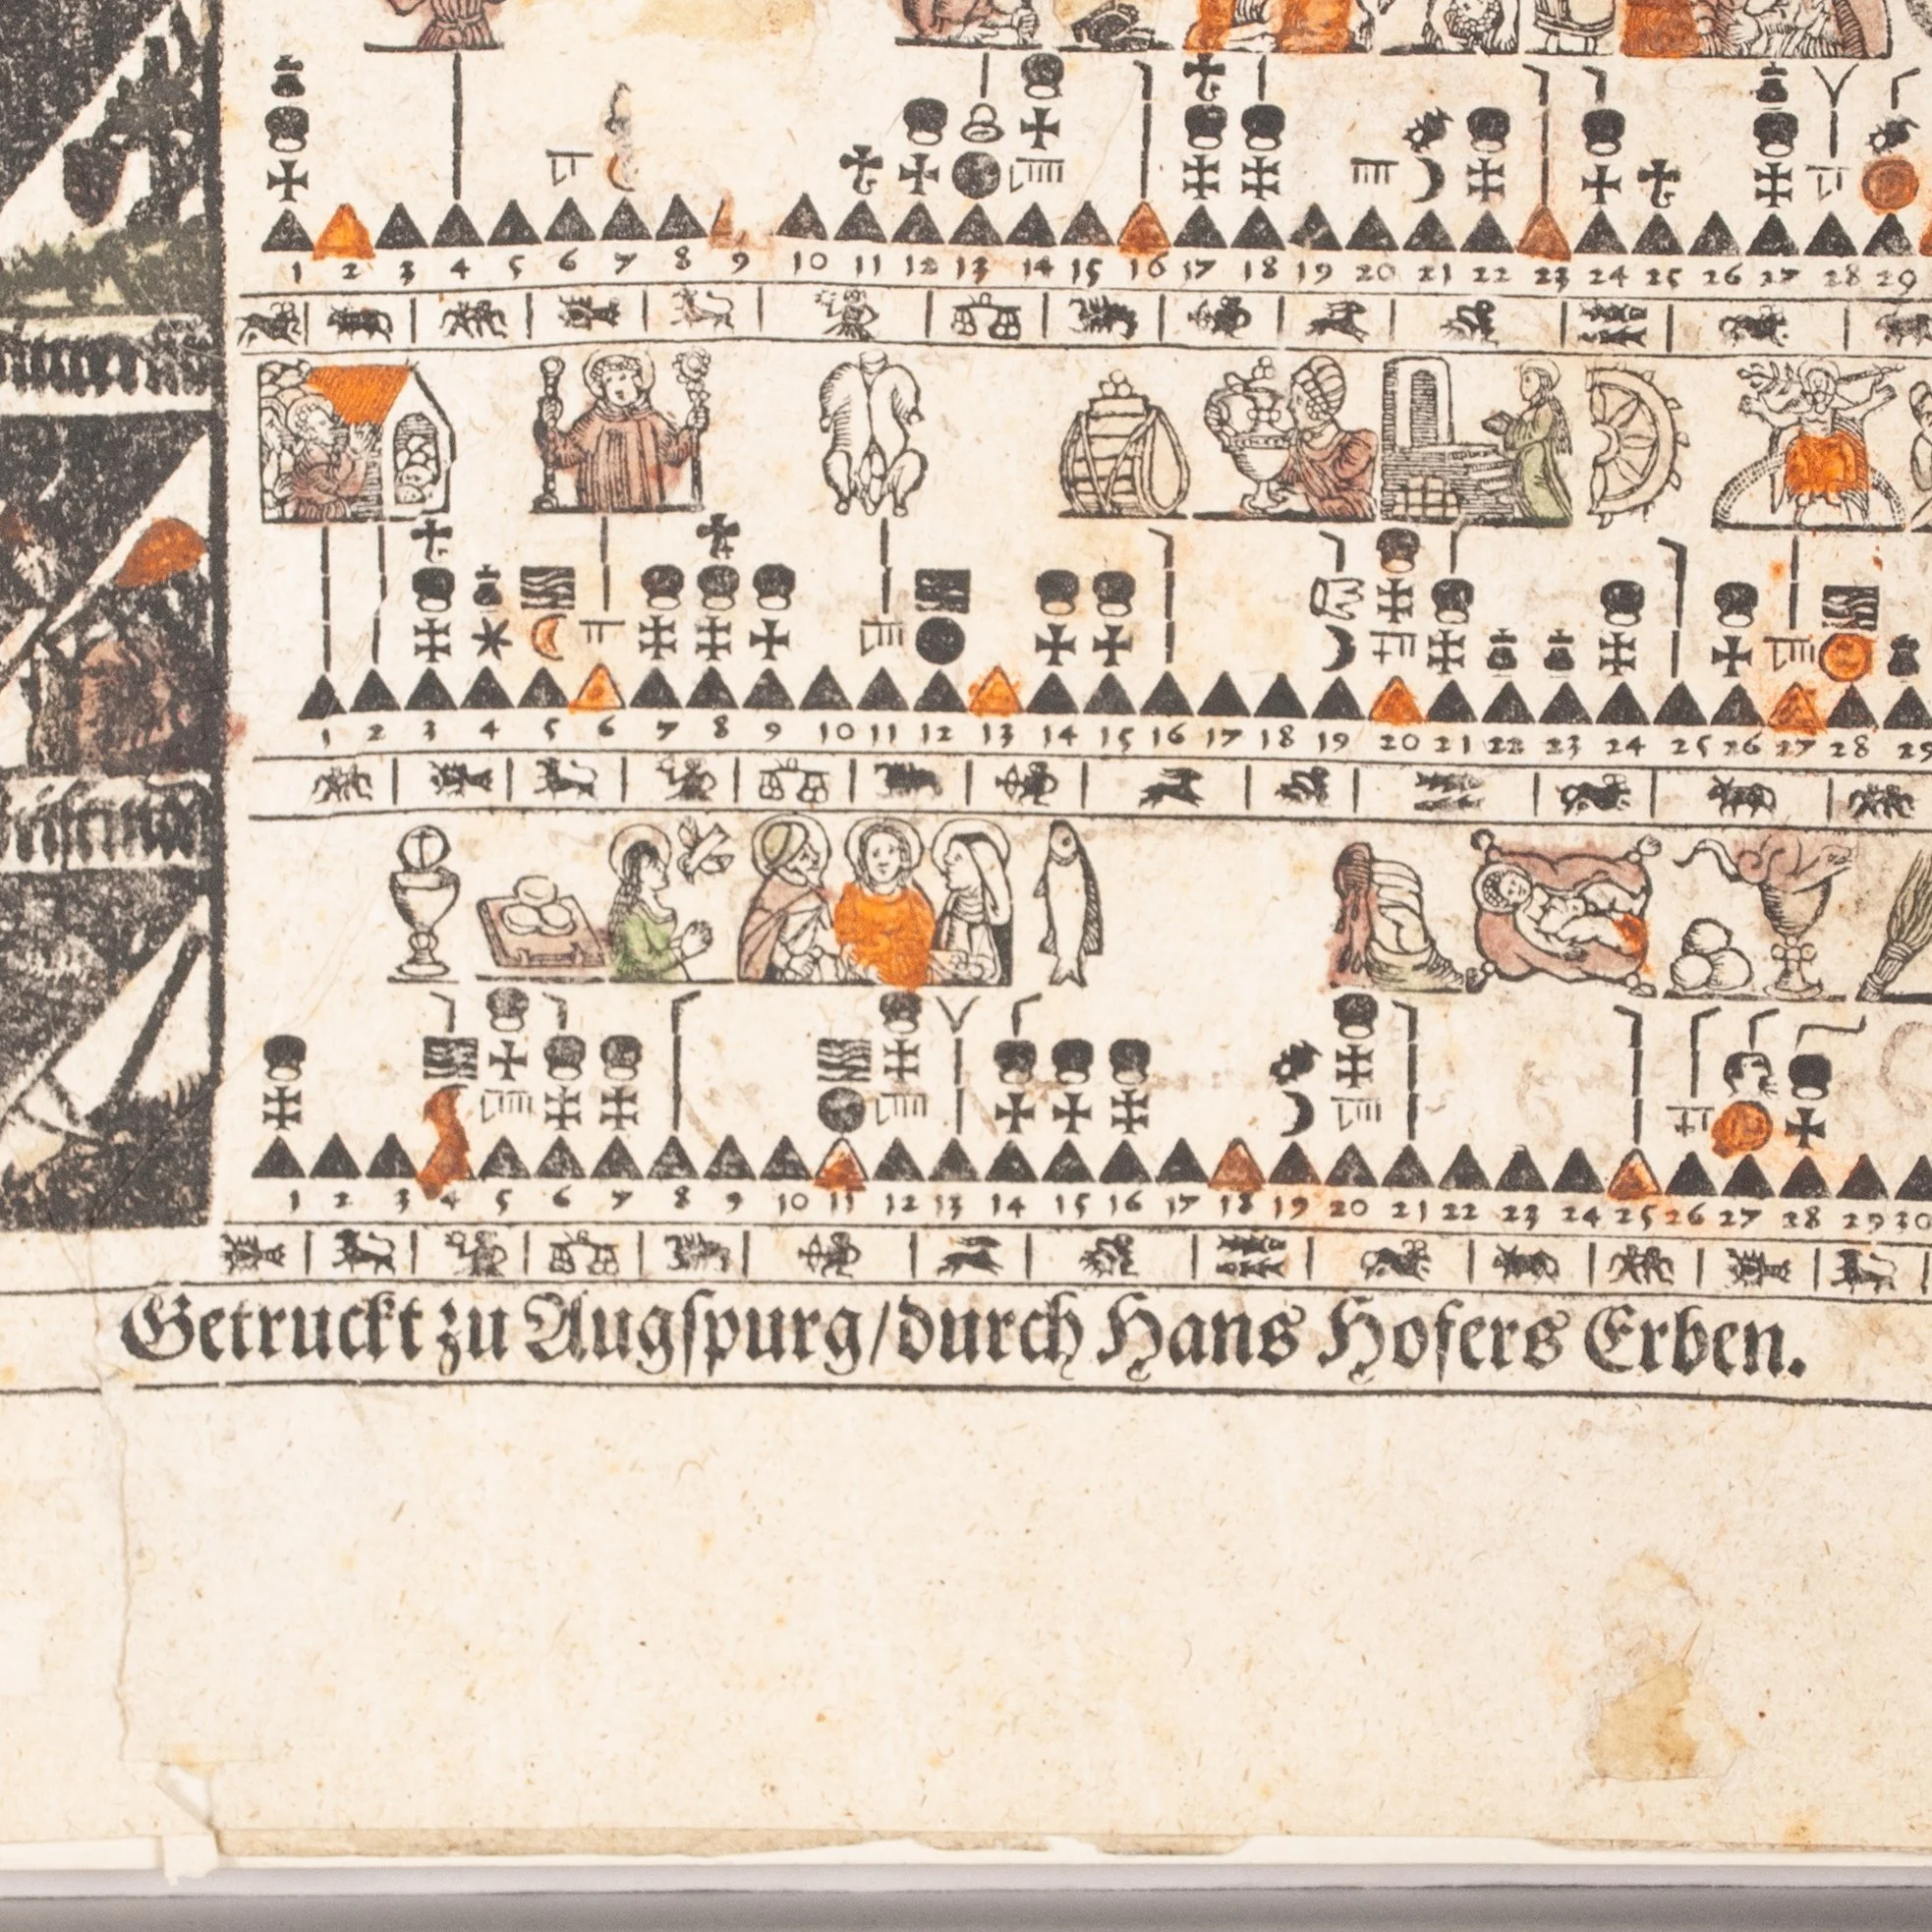 1 2 3 4 5 6 7 8 9 10 11 12 13 14 15 16 17 18 19 20 21 22 23 24 25 26 27 28 29
1 2 3 4 5 6 7 8 9 10 11 12 13 14 15 16 17 18 19 20 21 22 23 24 25 26 27 28 29
1 2 3 4 5 6 7 8 9 10 11 12 13 14 15 16 17 18 19 20 21 22 23 24 25 26 27 28 29 30
Getruckt zu Augſpurg/durch Hans Hofers Erben.